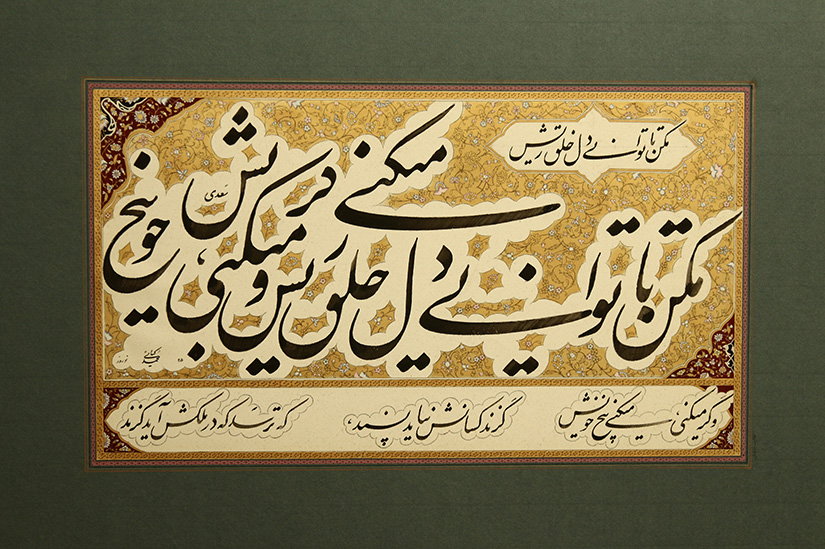 مکن تا توانی دل خلق ریش
مکن تا توانی دل خلق ریش وگر میکنی، میکنی بیخ خویش
سعدی
وگر میکنی، میکنی بیخ خویش گزند کسانش نیاید پسند، که ترسد که در ملکش آید گزند